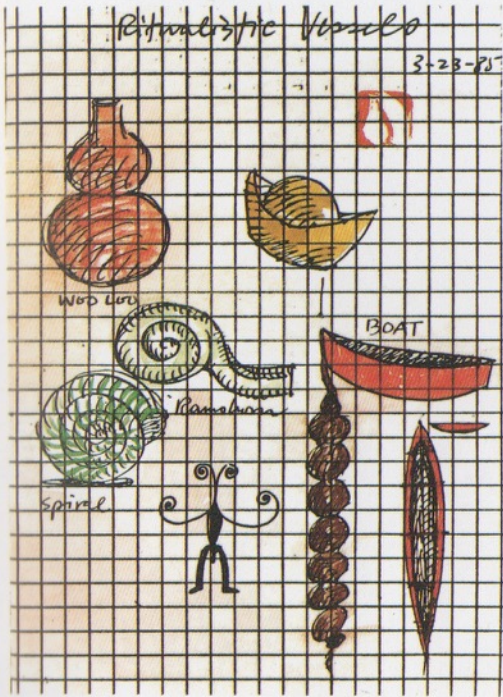 Ritualistic Vessels
3-23-85
WOO LOU
BOAT
Ramshorn
Spiral